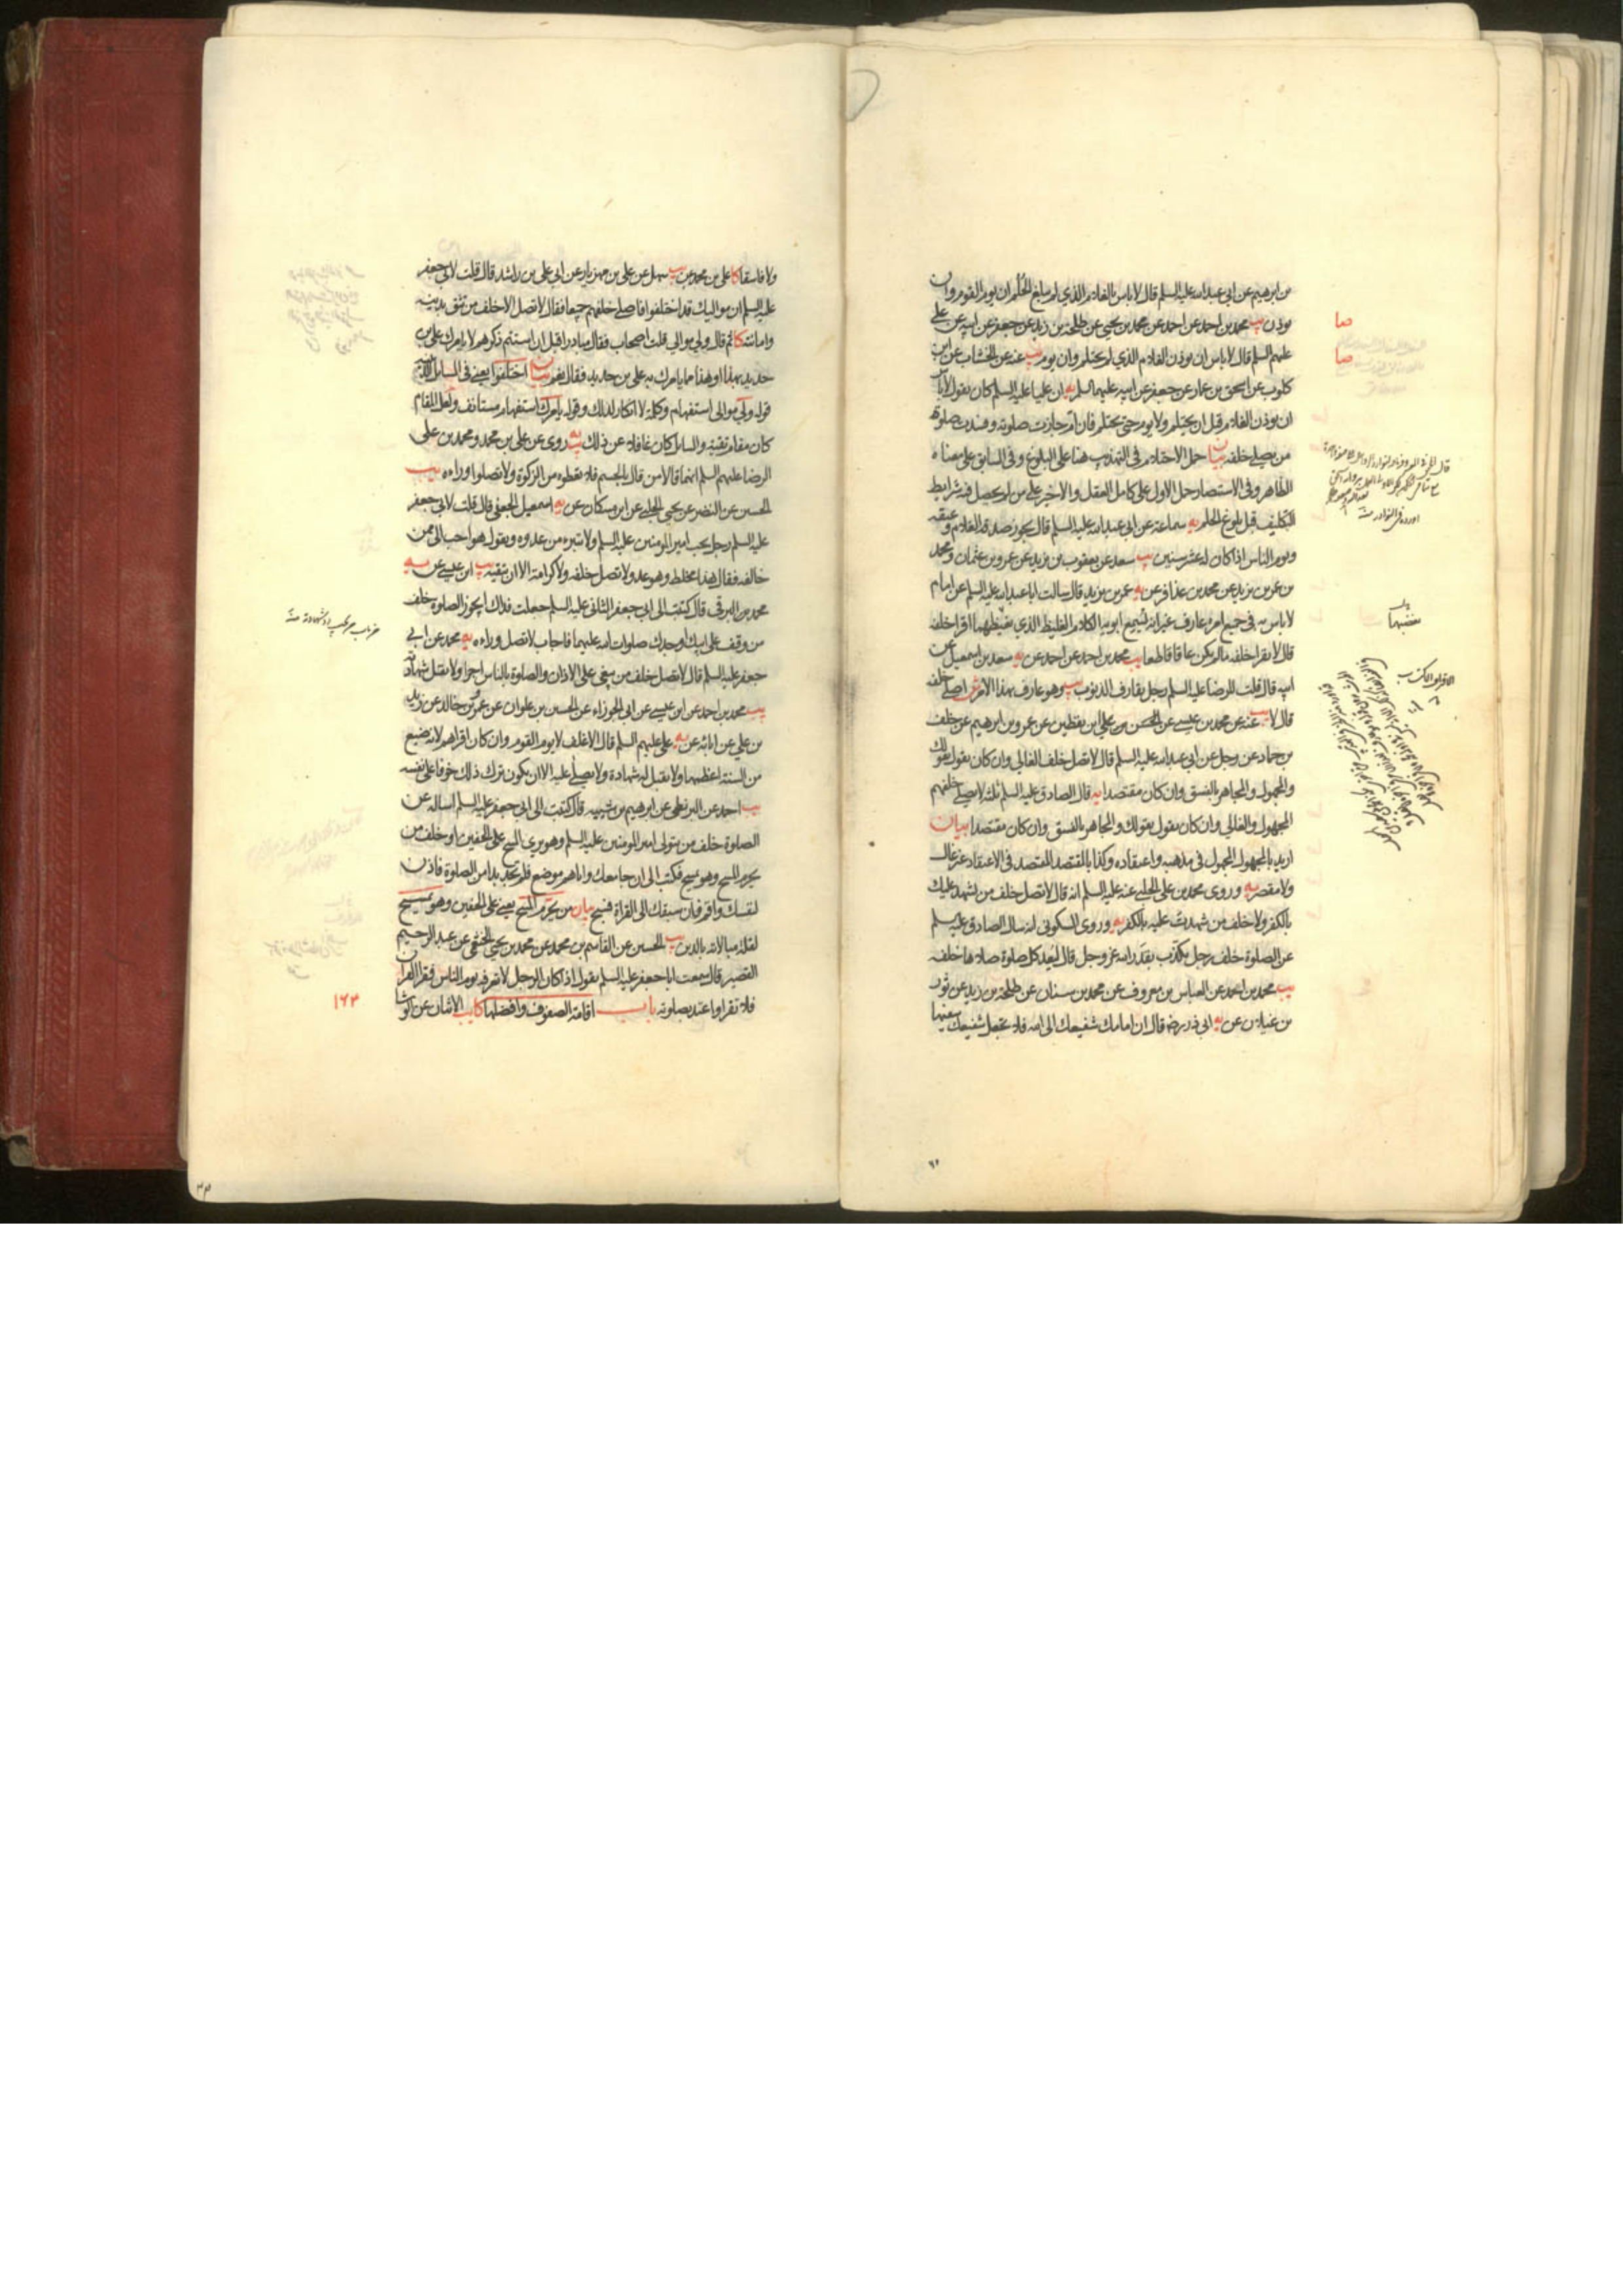 بن ابرهيم عن ابي عبد الله عليه السلم قال لا باس بالغلام الذي لم يبلغ الحلم ان يوم القوم وان
يوذن يب محمد بن احمد عن احمد عن محمد بن يحيى عن طلحة بن زيد عن جعفر عن ابيه عن علي
عليهم السلم قال لا باس ان يوذن الغلام الذي لم يحتلم وان يوم يب عنه عن الخشاب عن ابن
كلوب عن اسحق بن عمار عن جعفر عن ابيه عليهما السلم يه ان عليا عليه السلم كان يقول لا باس
ان يوذن الغلام قبل ان يحتلم ولا يوم حتى يحتلم فان ام جازت صلوته وفسدت صلوة
من يصلي خلفه بيان حمل الاحتلام في التهذيب هنا على البلوغ وفي السابق على معناه
الظاهر وفي الاستبصار حمل الاول على كامل العقل والاخير على من لم يحصل فيه شرايط
التكليف قبل بلوغ الحلم يه سماعة عن ابي عبد الله عليه السلم قال يجوز صدقة الغلام وعتقه
ويوم الناس اذا كان له عشر سنين يب سعد عن يعقوب بن يزيد عن عمرو بن عثمان ومحمد
بن عمر بن يزيد عن محمد بن عذافر عن يه عمر بن يزيد قال سالت ابا عبد الله عليه السلم عن امام
لا باس به في جميع امره عارف غير انه يسمع ابويه الكلام الغليظ الذي يغيظهما اقرا خلفه
قال لا تقرا خلفه ما لم يكن عاقا قاطعا يب محمد بن احمد عن احمد عن يه سعد بن اسمعيل عن
ابيه قال قلت للرضا عليه السلم رجل يقارف الذنوب يب وهو عارف بهذا الامر ش اصلي خلفه
قال لا يب عنه عن محمد بن عيسى عن الحسن بن علي بن يقطين عن عمرو بن ابرهيم عن خلف
بن حماد عن رجل عن ابي عبد الله عليه السلم قال لا تصل خلف الغالي وان كان يقول بقولك
والمجهول والمجاهر بالفسق وان كان مقتصدا يه قال الصادق عليه السلم ثلثة لا يصلى خلفهم
المجهول والغالي وان كان يقول بقولك والمجاهر بالفسق وان كان مقتصدا بيان
اريد بالمجهول المجهول في مذهبه واعتقاده وكذا بالمقتصد المقتصد في الاعتقاد غير غال
ولا مقصر يه وروى محمد بن علي الحلبي عنه عليه السلم انه قال لا تصل خلف من يشهد عليك
بالكفر ولا خلف من شهدت عليه بالكفر يه وروى السكوني انه سال الصادق عليه السلم
عن الصلوة خلف رجل يكذب بقدر الله عز وجل قال ليعد كل صلوة صلاها خلفه
يب محمد بن احمد عن العباس بن معروف عن محمد بن سنان عن طلحة بن زيد عن ثور
بن غيلان عن يه ابي ذر رضه قال ان امامك شفيعك الى الله فلا تجعل شفيعك سفيها
صا
صا
يغضبهما
ولا فاسقا كا علي بن محمد عن يب سهل عن علي بن مهزيار عن ابي علي بن راشد قال قلت لابي جعفر
عليه السلم ان مواليك قد اختلفوا فاصلي خلفهم جميعا فقال لا تصل الا خلف من تثق بدينه
وامانته كا ثم قال ولي موالي قلت اصحاب فقال مبادرا قبل ان استتم ذكرهم لا يامرك علي بن
حديد بهذا او هذا مما يامرك به علي بن حديد فقال نعم بيان اختلفوا يعني في المسائل الدينية
قوله ولي موالي استفهام وكلمة لا انكار لذلك وقوله يامرك استفهام مستانف ولعل المقام
كان مقام تقية والسائل كان غافلا عن ذلك يب يه روى عن علي بن محمد ومحمد بن علي
الرضا عليهم السلم انهما قالا من قال بالجسم فلا تعطوه من الزكوة ولا تصلوا وراءه يب
الحسين عن النضر عن يحيى الحلبي عن ابن مسكان عن يه اسمعيل الجعفي قال قلت لابي جعفر
عليه السلم رجل يحب امير المومنين عليه السلم ولا يتبرء من عدوه ويقول هو احب الي ممن
خالفه فقال هذا مخلط وهو عدو لا تصل خلفه ولا كرامة الا ان تتقيه يب ابن عيسى عن يه
محمد بن البرقي قال كتبت الى ابي جعفر الثاني عليه السلم جعلت فداك ايجوز الصلوة خلف
من وقف على ابيك وجدك صلوات الله عليهما فاجاب لا تصل وراءه يه محمد عن ابي
جعفر عليه السلم قال لا تصل خلف من يبغي على الاذان والصلوة بالناس اجرا ولا تقبل شهادته
يب محمد بن احمد عن ابن عيسى عن ابي الجوزاء عن الحسين بن علوان عن عمرو بن خالد عن زيد
بن علي عن ابائه عن يه علي عليهم السلم قال الاغلف لا يوم القوم وان كان اقراهم لانه ضيع
من السنة اعظمها ولا يقبل له شهادة ولا يصلى عليه الا ان يكون ترك ذلك خوفا على نفسه
يب احمد عن البزنطي عن ابرهيم بن شيبة قال كتبت الى ابي جعفر عليه السلم اساله عن
الصلوة خلف من يتولى امير المومنين عليه السلم وهو يرى المسح على الخفين او خلف من
يحرم المسح وهو يمسح فكتب الي ان جامعك واياهم موضع فلم تجد بدا من الصلوة فاذن
لنفسك واقم فان سبقك الى القراة فسبح بيان من يحرم المسح يعني على الخفين وهو يمسح
لقلة مبالاته بالدين يب الحسين عن القاسم بن محمد عن محمد بن يحيى الخثعمي عن عبد الرحيم
القصير قال سمعت ابا جعفر عليه السلم يقول اذا كان الرجل لا تعرفه يوم الناس فقرا القران
فلا تقرا واعتد بصلوته باب اقامة الصفوف وافضلها كا يب الاثنان عن الوشا
١٦٣